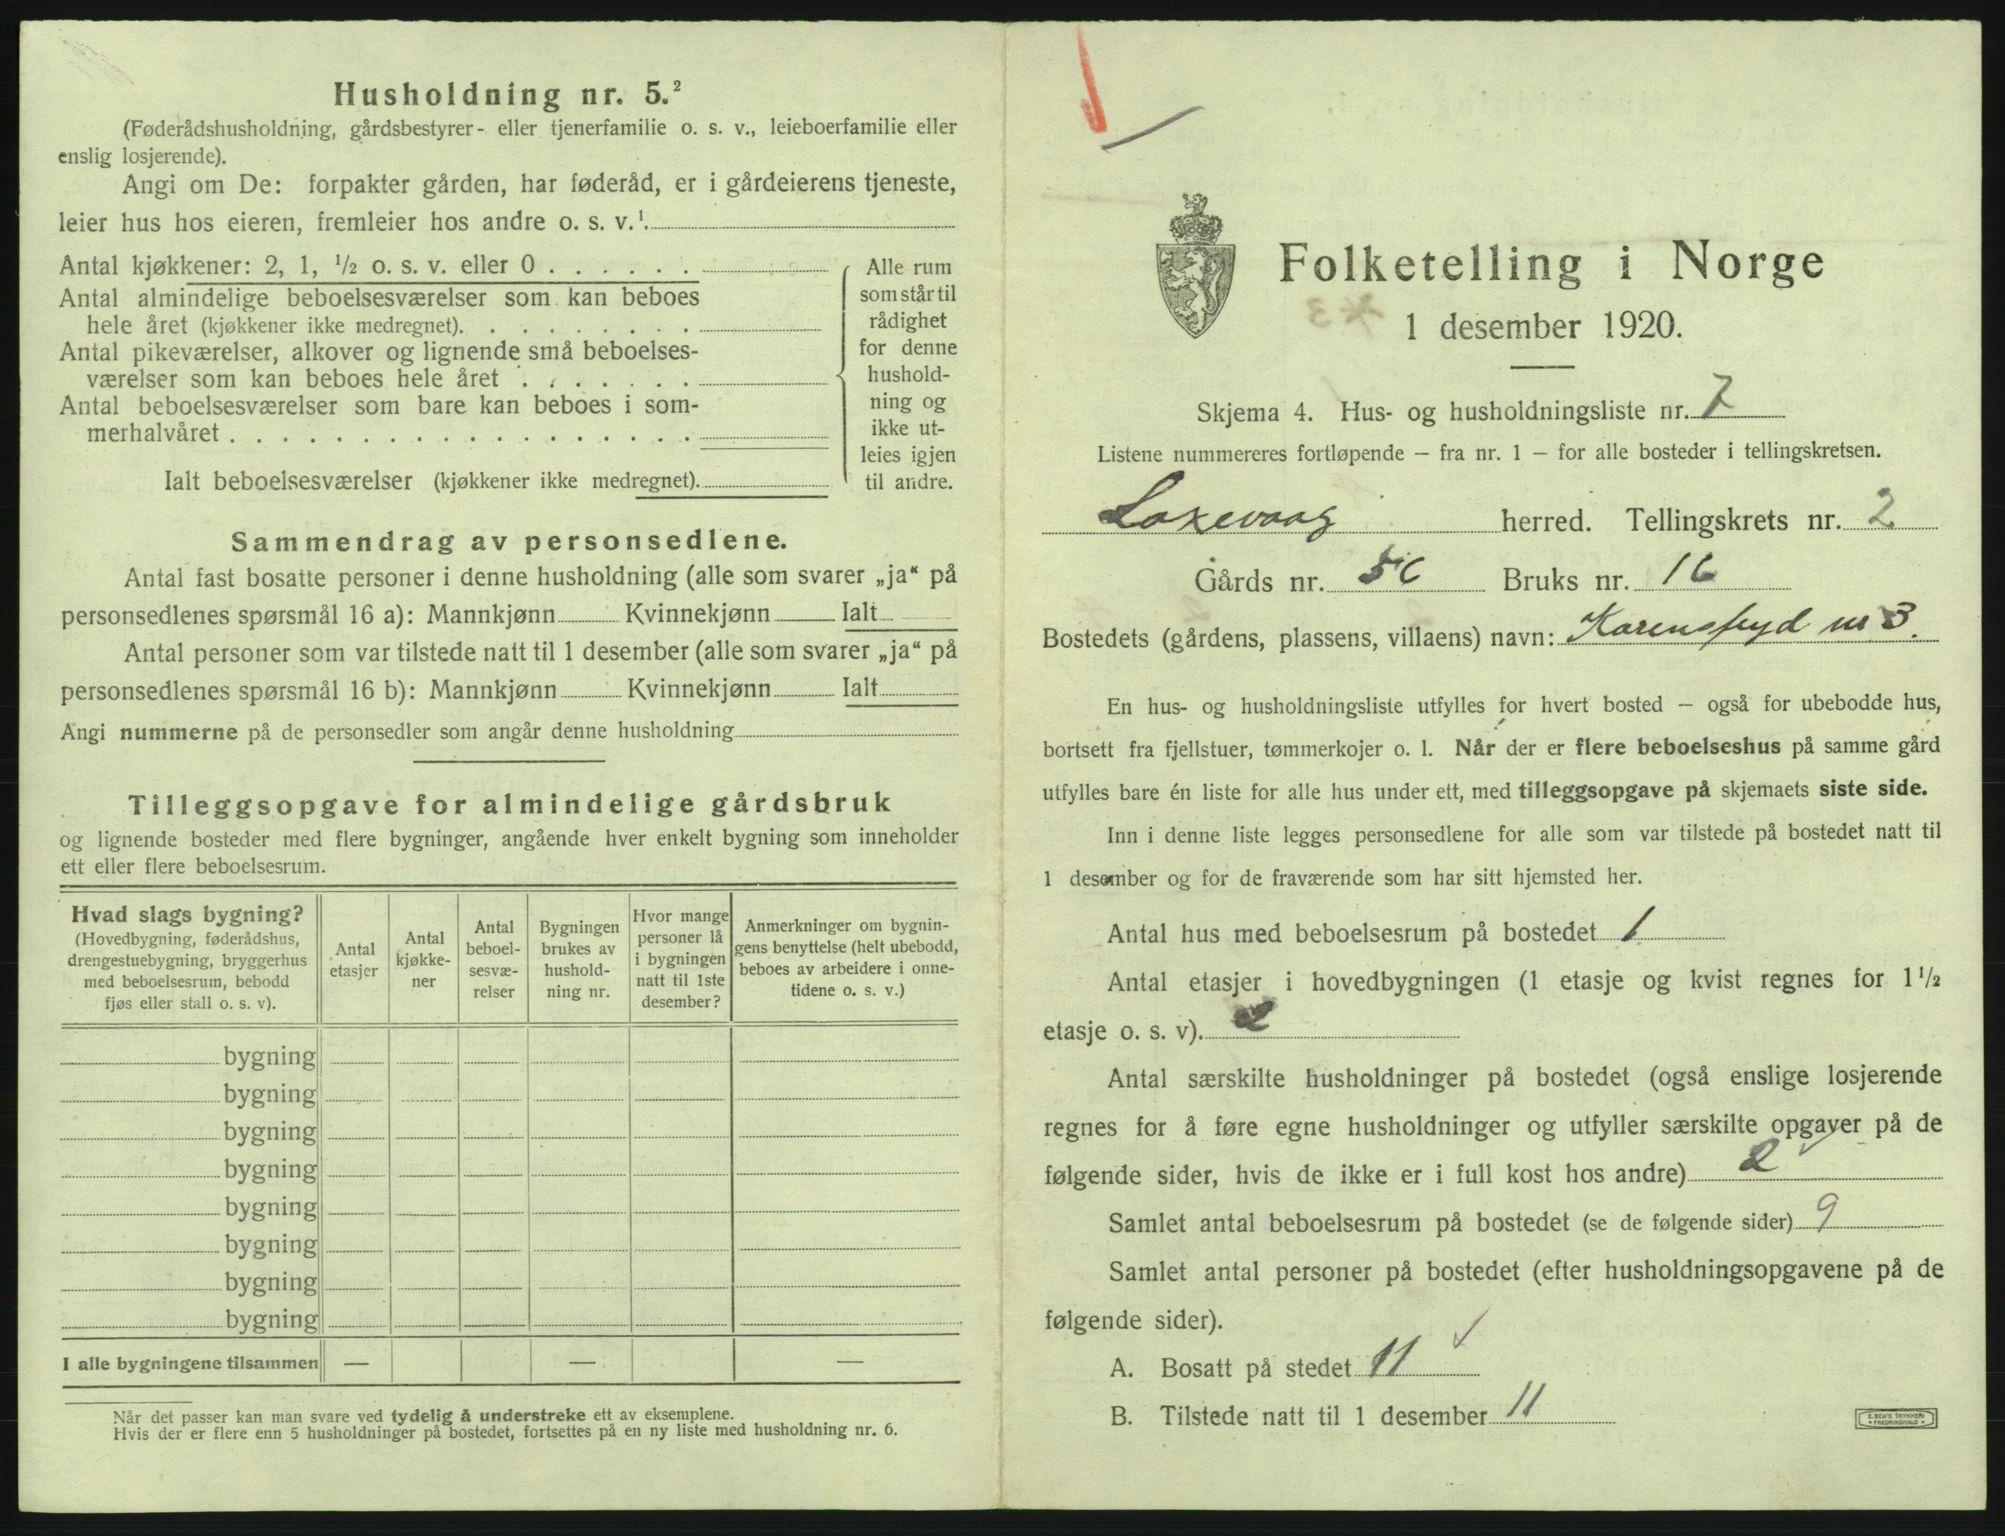 Husholdning nr. 5.²
(Føderådshusholdning, gårdsbestyrer- eller tjenerfamilie o. s. v., leieboerfamilie eller
enslig losjerende).
Angi om De: forpakter gården, har føderåd, er i gårdeierens tjeneste,
leier hus hos eieren, fremleier hos andre o. s. v.¹.
Antal kjøkkener: 2, 1, ½ o. s. v. eller 0 . . . . . .
Antal almindelige beboelsesværelser som kan beboes
hele året (kjøkkener ikke medregnet). . . . . . . . .
Antal pikeværelser, alkover og lignende små beboelses-
værelser som kan beboes hele året . . . . . . .
Antal beboelsesværelser som bare kan beboes i som-
merhalvåret . . . . . . . . . . . . . . . . . .
Ialt beboelsesværelser (kjøkkener ikke medregnet).
Alle rum
som står til
rådighet
for denne
hushold-
ning og
ikke ut-
leies igjen
til andre.
Sammendrag av personsedlene.
Antal fast bosatte personer i denne husholdning (alle som svarer „ja“ på
personsedlenes spørsmål 16 a): Mannkjønn Kvinnekjønn Ialt
Antal personer som var tilstede natt til 1 desember (alle som svarer „ja“ på
personsedlenes spørsmål 16 b): Mannkjønn Kvinnekjønn Ialt
Angi nummerne på de personsedler som angår denne husholdning
Tilleggsopgave for almindelige gårdsbruk
og lignende bosteder med flere bygninger, angående hver enkelt bygning som inneholder
ett eller flere beboelsesrum.
Hvad slags bygning?
(Hovedbygning, føderådshus,
drengestuebygning, bryggerhus
med beboelsesrum, bebodd
fjøs eller stall o. s. v).
Antal
etasjer
Antal
kjøkke-
ner
Antal
beboel-
sesvæ-
relser
Bygningen
brukes av
hushold-
ning nr.
Hvor mange
personer lå
i bygningen
natt til 1ste
desember?
Anmerkninger om bygnin-
gens benyttelse (helt ubebodd,
beboes av arbeidere i onne-
tidene o. s. v.)
bygning
bygning
bygning
bygning
bygning
bygning
bygning
bygning
I alle bygningene tilsammen — — —
Når det passer kan man svare ved tydelig å understreke ett av eksemplene.
Hvis der er flere enn 5 husholdninger på bostedet, fortsettes på en ny liste med husholdning nr. 6.
Folketelling i Norge
1 desember 1920.
Skjema 4. Hus- og husholdningsliste nr. 7
Listene nummereres fortløpende – fra nr. 1 – for alle bosteder i tellingskretsen.
Laxevaag herred. Tellingskrets nr. 2
Gårds nr. Bruks nr. 16
Bostedets (gårdens, plassens, villaens) navn: Karensfryd nr 3.
En hus- og husholdningsliste utfylles for hvert bosted – også for ubebodde hus,
bortsett fra fjellstuer, tømmerkojer o. l. Når der er flere beboelseshus på samme gård
utfylles bare én liste for alle hus under ett, med tilleggsopgave på skjemaets siste side.
Inn i denne liste legges personsedlene for alle som var tilstede på bostedet natt til
1 desember og for de fraværende som har sitt hjemsted her.
Antal hus med beboelsesrum på bostedet 1
Antal etasjer i hovedbygningen (1 etasje og kvist regnes for 1½
etasje o. s. v). 2
Antal særskilte husholdninger på bostedet (også enslige losjerende
regnes for å føre egne husholdninger og utfyller særskilte opgaver på de
følgende sider, hvis de ikke er i full kost hos andre) 2
Samlet antal beboelsesrum på bostedet (se de følgende sider) 9
Samlet antal personer på bostedet (efter husholdningsopgavene på de
følgende sider).
A. Bosatt på stedet 11
B. Tilstede natt til 1 desember 11